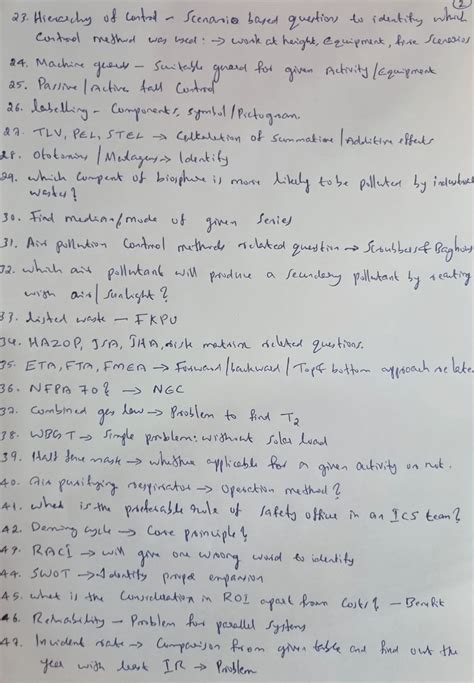 2
23. Hierarchy of Control - Scenario based questions to identify which
Control method was used: → work at height, Equipment, fire Scenarios
24. Machine guards - Suitable guard for given Activity/Equipment
25. Passive/Active fall Control
26. labelling - Components, symbol/Pictogram.
27. TLV, PEL, STEL → Calculation of Summation/Additive effects
28. Ototoxins/ → Identify
29. which Compent of biosphere is more likely to be polluted by industrial
wastes?
30. Find median/mode of given Series
31. Air pollution Control methods related question → Scrubbers & Baghous
32. which air pollutant will produce a Secondary pollutant by reacting
with air/Sunlight?
33. listed waste - FKPU
34. HAZOP, JSA, JHA, risk matrix related questions.
35. ETA, FTA, FMEA → Forward/backward/Top & bottom approach relate
36. NFPA 70? → NEC
37. Combined gas law → Problem to find T2
38. WBGT → Simple problem: without solar load
39. Half face mask → whether applicable for a given activity or not.
40. Air purifying respirator → Operation method?
41. what is the preferable rule of Safety officer in an ICS team?
42. Deming cycle → Core principle?
43. RACI → will give one wrong word to identify
44. SWOT → Identify proper expansion
45. what is the Consideration in ROI apart from Costs? - Benefit
46. Reliability - Problem for parallel Systems
47. Incident rate → Comparison from given table and find out the
year with least IR → Problem